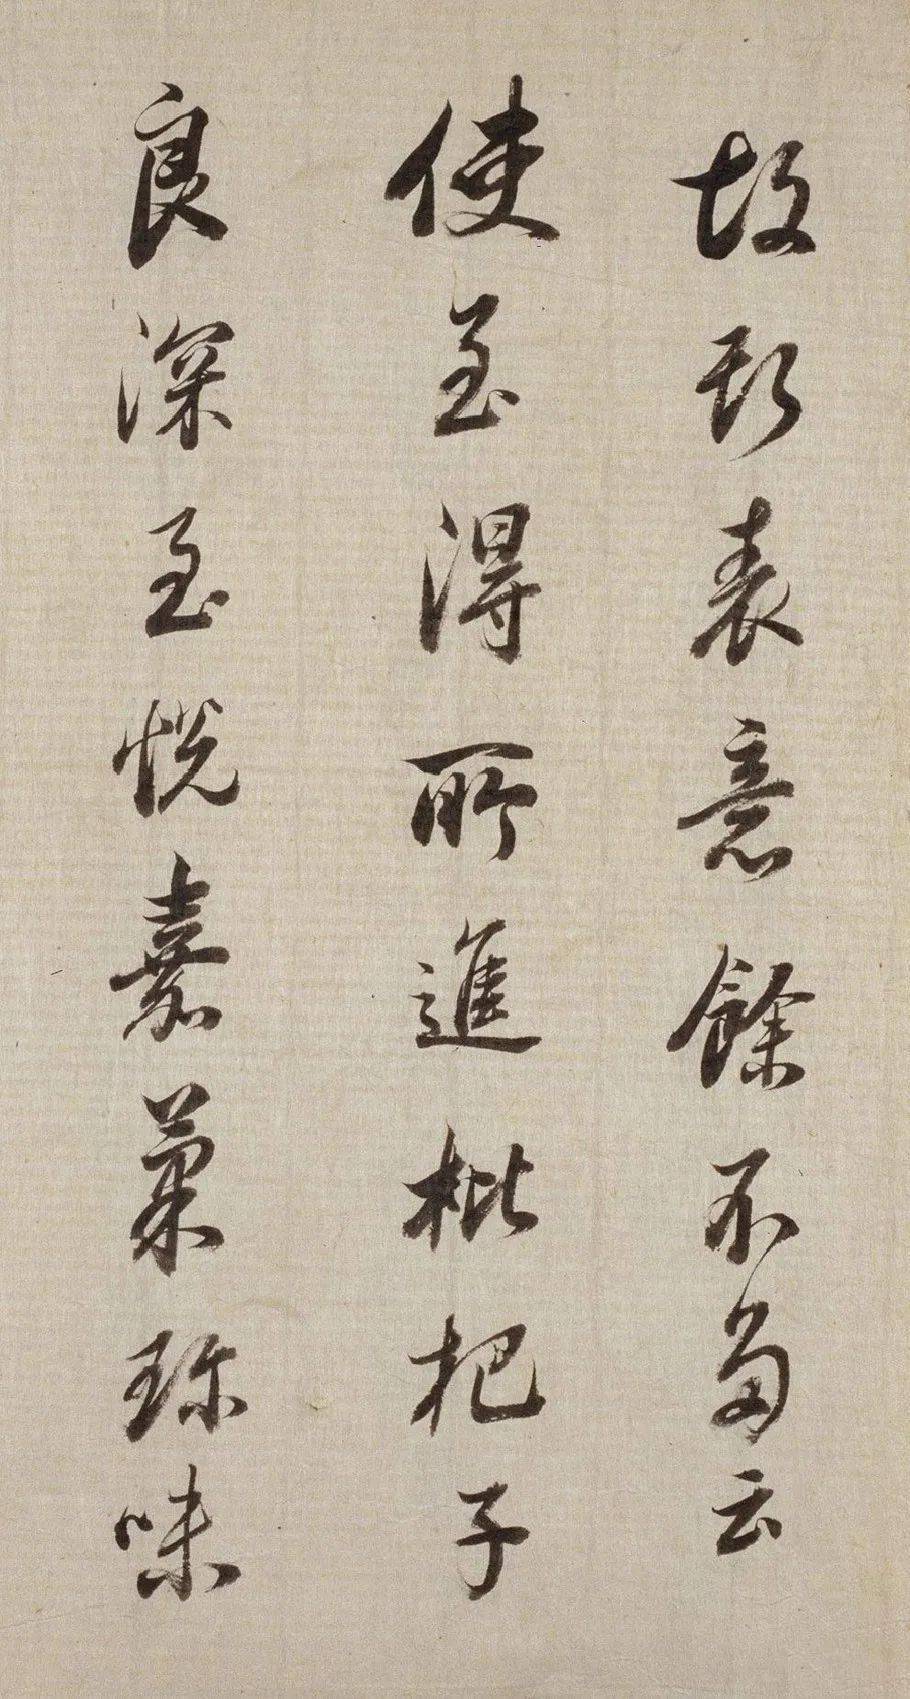 故斯表意餘不多云
使至得所進枇杷子
良深至悅嘉菓珍味